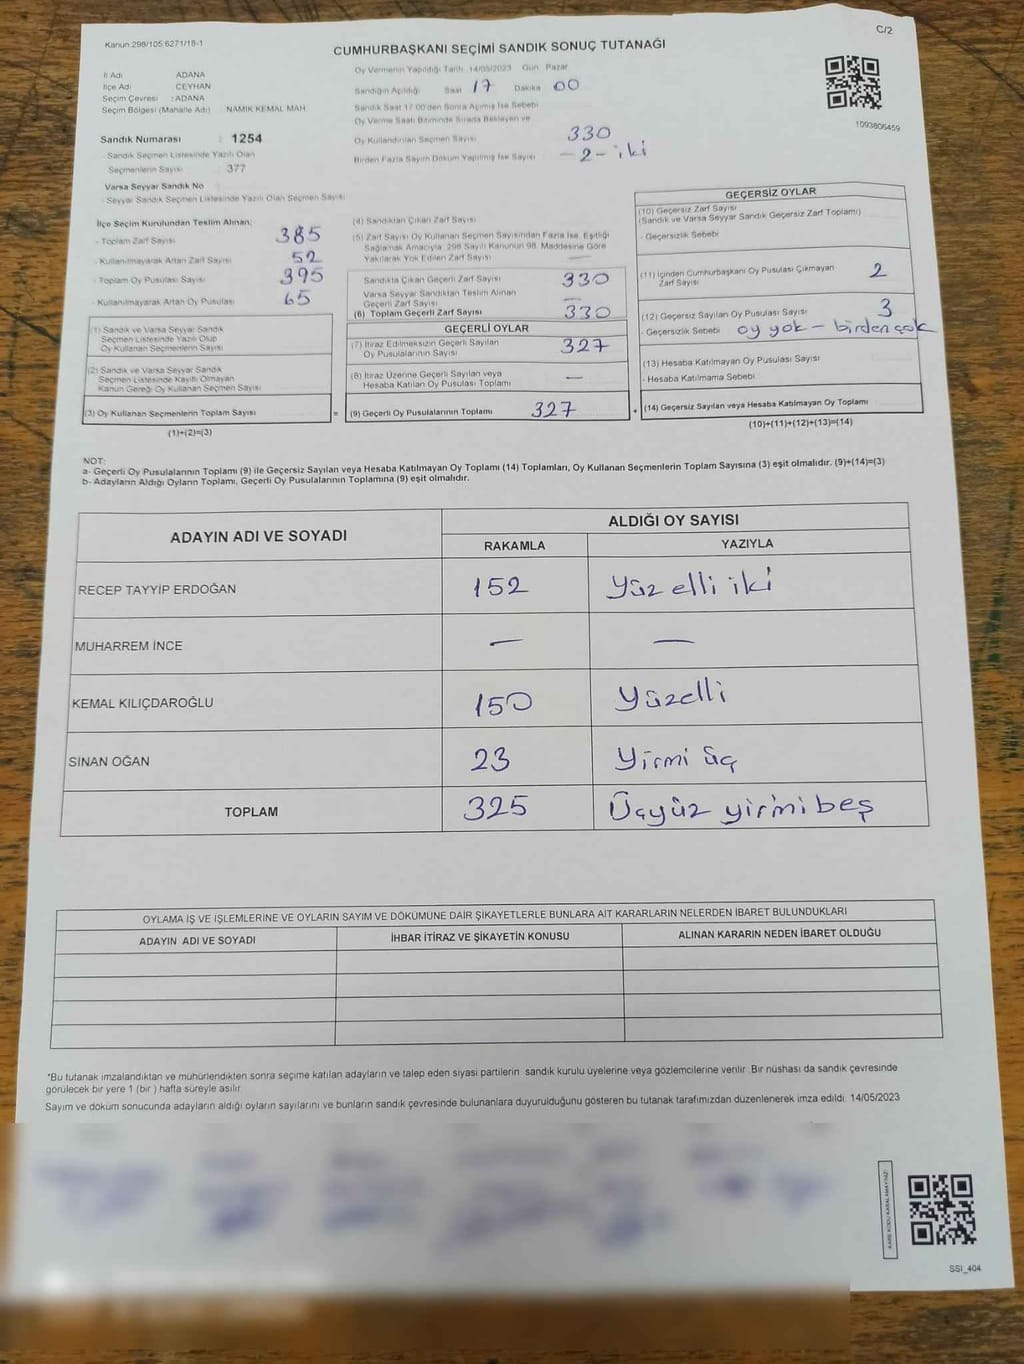 Kanun:298/105 6271/18-1
C/2
CUMHURBAŞKANI SEÇİMİ SANDIK SONUÇ TUTANAĞI
İl Adı ADANA
İlçe Adı CEYHAN
Seçim Çevresi : ADANA
Seçim Bölgesi (Mahalle Adı) NAMIK KEMAL MAH
Sandık Numarası : 1254
- Sandık Seçmen Listesinde Yazılı Olan
Seçmenlerin Sayısı : 377
Varsa Seyyar Sandık No
- Seyyar Sandık Seçmen Listesinde Yazılı Olan Seçmen Sayısı
Oy Vermenin Yapıldığı Tarih :14/05/2023 Gün Pazar
Sandığın Açıldığı Saat 17 Dakika 00
Sandık Saat 17:00'den Sonra Açılmış İse Sebebi
Oy Verme Saati Bitiminde Sırada Bekleyen ve
Oy Kullandırılan Seçmen Sayısı 330
Birden Fazla Sayım Döküm Yapılmış İse Sayısı - 2 - iki
1093806459
İlçe Seçim Kurulundan Teslim Alınan;
- Toplam Zarf Sayısı 385
- Kullanılmayarak Artan Zarf Sayısı 52
- Toplam Oy Pusulası Sayısı 395
- Kullanılmayarak Artan Oy Pusulası 65
(1) Sandık ve Varsa Seyyar Sandık
Seçmen Listesinde Yazılı Olup
Oy Kullanan Seçmenlerin Sayısı
(2) Sandık ve Varsa Seyyar Sandık
Seçmen Listesinde Kayıtlı Olmayan
Kanun Gereği Oy Kullanan Seçmen Sayısı
(3) Oy Kullanan Seçmenlerin Toplam Sayısı
(1)+(2)=(3)
=
(4) Sandıktan Çıkan Zarf Sayısı
(5) Zarf Sayısı Oy Kullanan Seçmen Sayısından Fazla İse, Eşitliği
Sağlamak Amacıyla 298 Sayılı Kanunun 98. Maddesine Göre
Yakılarak Yok Edilen Zarf Sayısı —
Sandıkta Çıkan Geçerli Zarf Sayısı 330
Varsa Seyyar Sandıktan Teslim Alınan
Geçerli Zarf Sayısı —
(6) Toplam Geçerli Zarf Sayısı 330
GEÇERLİ OYLAR
(7) İtiraz Edilmeksizin Geçerli Sayılan
Oy Pusulalarının Sayısı 327
(8) İtiraz Üzerine Geçerli Sayılan veya
Hesaba Katılan Oy Pusulası Toplamı —
(9) Geçerli Oy Pusulalarının Toplamı 327
+
GEÇERSİZ OYLAR
(10) Geçersiz Zarf Sayısı
(Sandık ve Varsa Seyyar Sandık Geçersiz Zarf Toplamı)
- Geçersizlik Sebebi
(11) İçinden Cumhurbaşkanı Oy Pusulası Çıkmayan
Zarf Sayısı 2
(12) Geçersiz Sayılan Oy Pusulası Sayısı 3
- Geçersizlik Sebebi oy yok - birden çok
(13) Hesaba Katılmayan Oy Pusulası Sayısı
- Hesaba Katılmama Sebebi
(14) Geçersiz Sayılan veya Hesaba Katılmayan Oy Toplamı
(10)+(11)+(12)+(13)=(14)
NOT:
a- Geçerli Oy Pusulalarının Toplamı (9) ile Geçersiz Sayılan veya Hesaba Katılmayan Oy Toplamı (14) Toplamları, Oy Kullanan Seçmenlerin Toplam Sayısına (3) eşit olmalıdır. (9)+(14)=(3)
b- Adayların Aldığı Oyların Toplamı, Geçerli Oy Pusulalarının Toplamına (9) eşit olmalıdır.
ADAYIN ADI VE SOYADI ALDIĞI OY SAYISI
RAKAMLA YAZIYLA
RECEP TAYYİP ERDOĞAN 152 Yüz elli iki
MUHARREM İNCE — —
KEMAL KILIÇDAROĞLU 150 Yüzelli
SİNAN OĞAN 23 Yirmi üç
TOPLAM 325 Üçyüz yirmi beş
OYLAMA İŞ VE İŞLEMLERİNE VE OYLARIN SAYIM VE DÖKÜMÜNE DAİR ŞİKAYETLERLE BUNLARA AİT KARARLARIN NELERDEN İBARET BULUNDUKLARI
ADAYIN ADI VE SOYADI İHBAR İTİRAZ VE ŞİKAYETİN KONUSU ALINAN KARARIN NEDEN İBARET OLDUĞU
*Bu tutanak imzalandıktan ve mühürlendikten sonra seçime katılan adayların ve talep eden siyasi partilerin sandık kurulu üyelerine veya gözlemcilerine verilir. Bir nüshası da sandık çevresinde
görülecek bir yere 1 (bir ) hafta süreyle asılır.
Sayım ve döküm sonucunda adayların aldığı oyların sayılarını ve bunların sandık çevresinde bulunanlara duyurulduğunu gösteren bu tutanak tarafımızdan düzenlenerek imza edildi. 14/05/2023
KARE KODU KARALAMAYINIZ!
SSİ_404